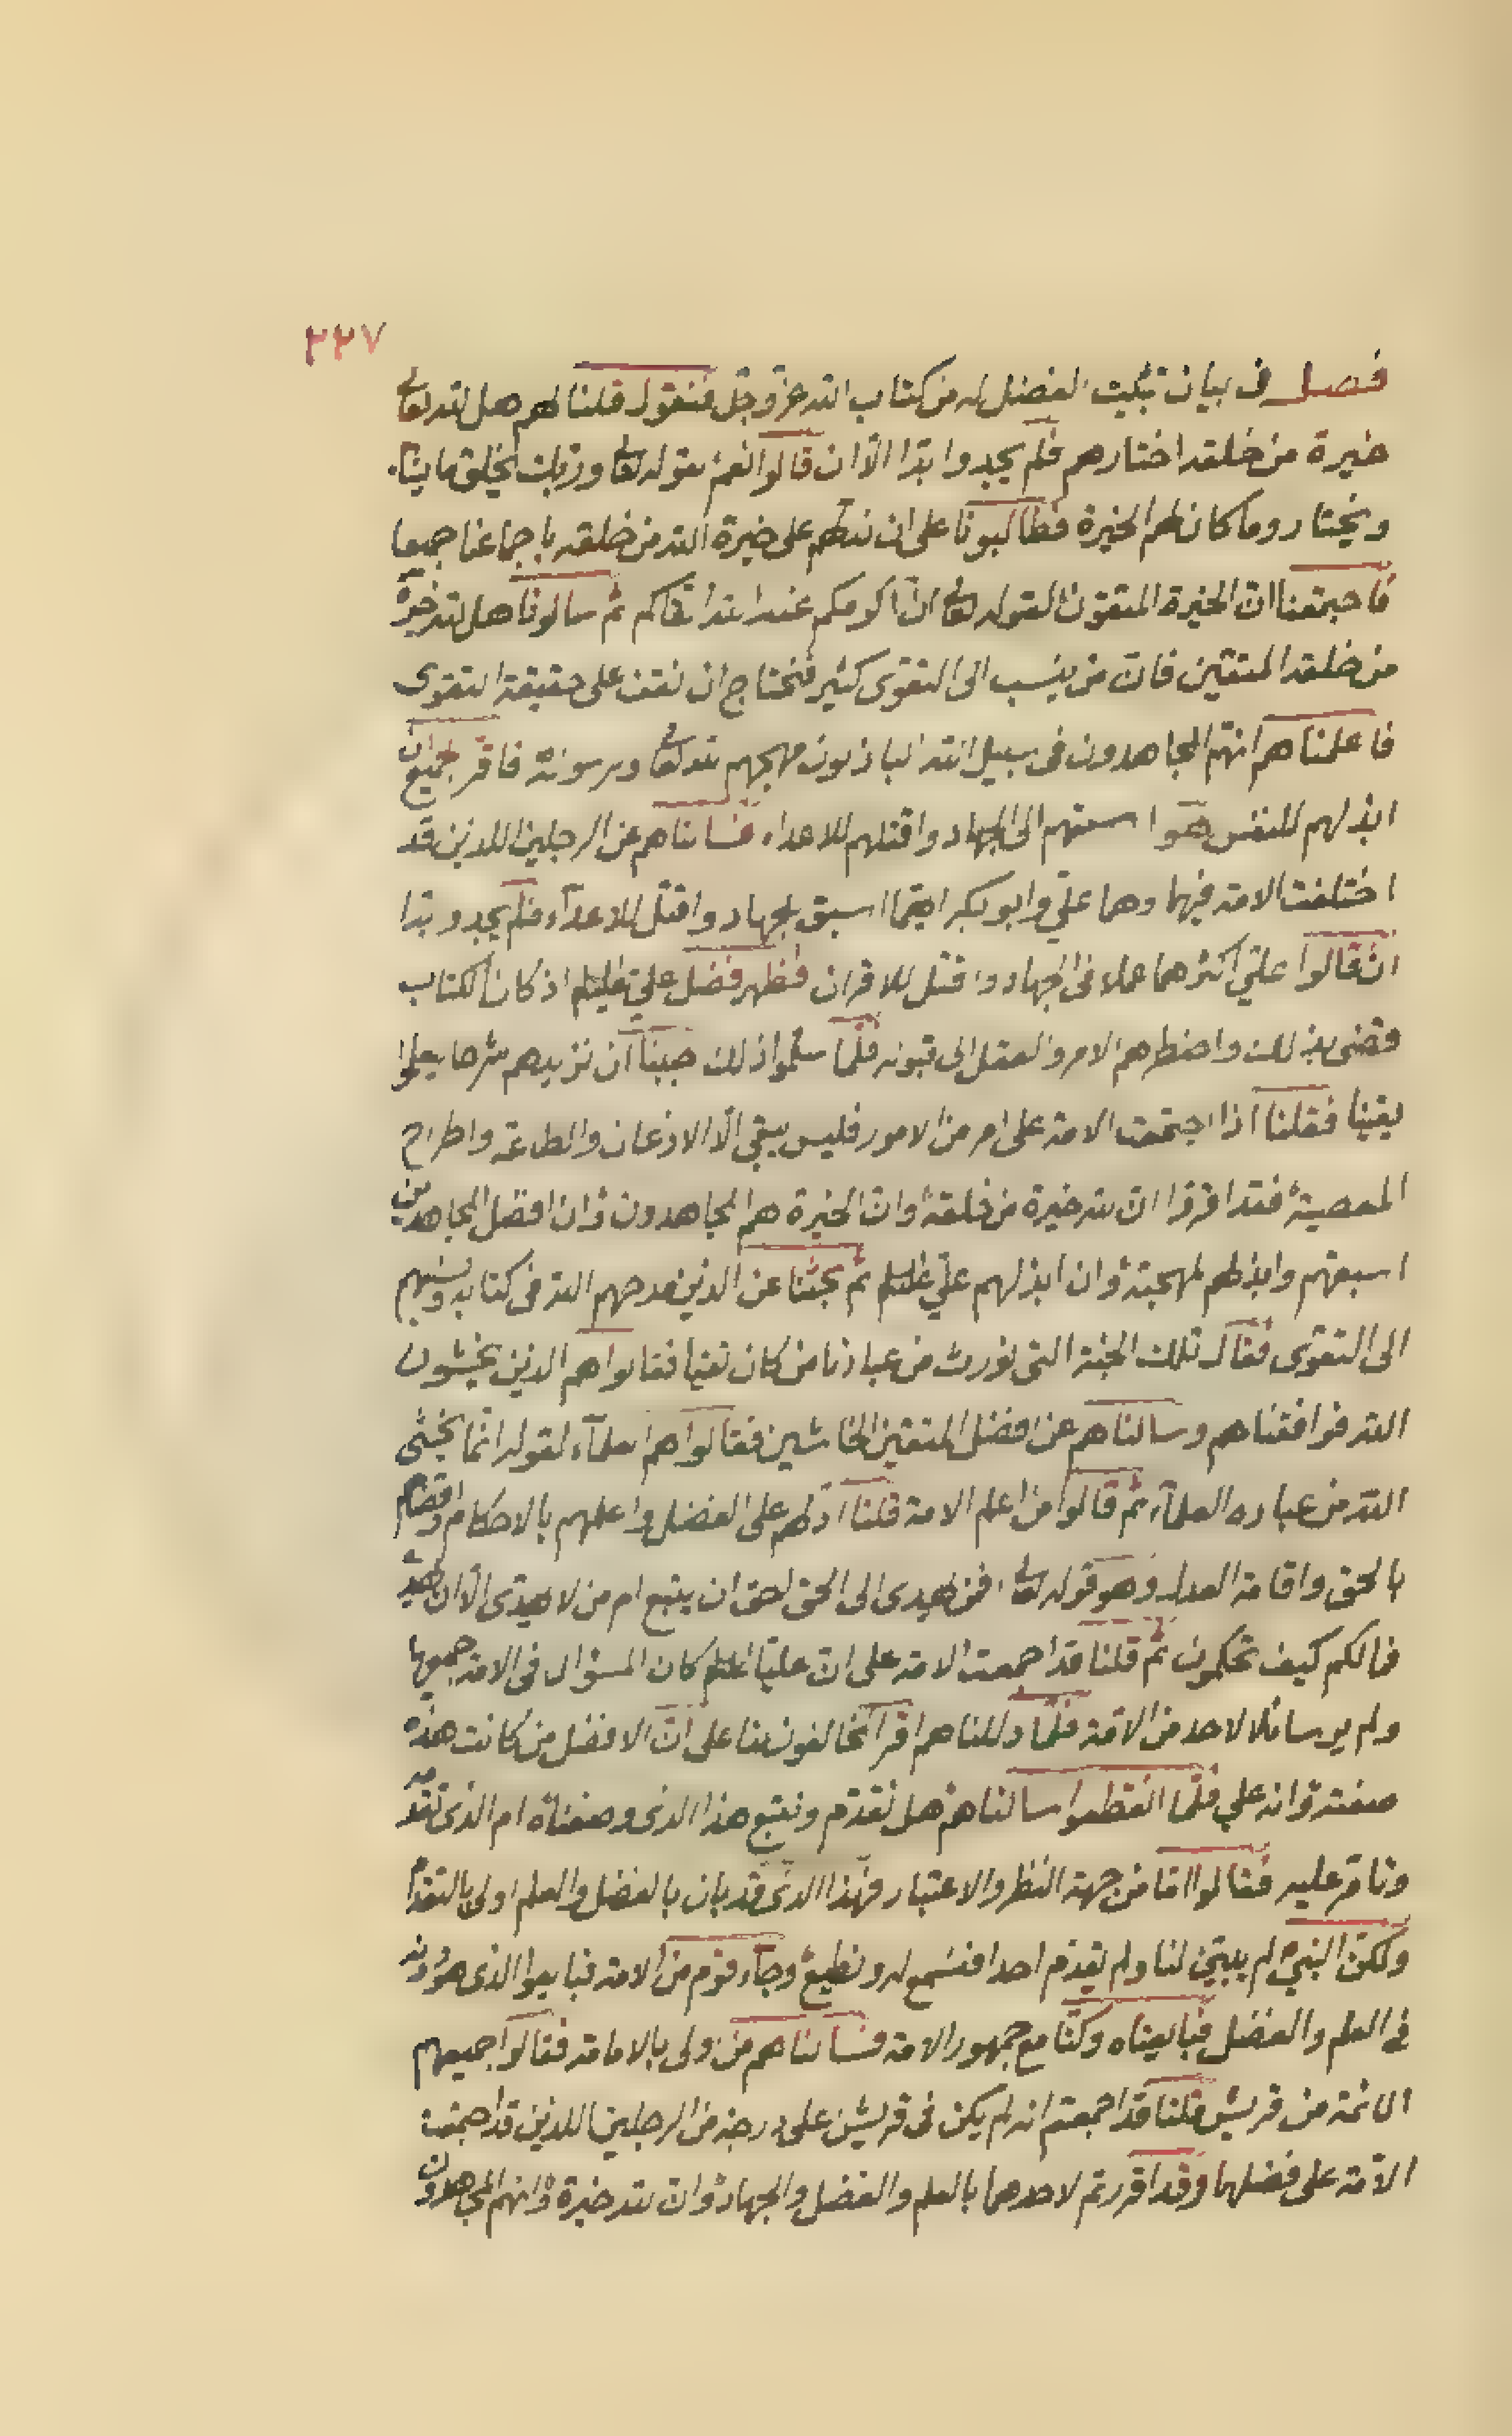 ٢٢٧
فصل في بيان تثبيت الفضل له من كتاب الله عز وجل فنقول قلنا لهم هل لله تعالى
خيرة من خلقه اختارهم فلم يجدوا بدا الا ان قالوا نعم بقوله تعالى وربك يخلق ما يشاء
ويختار وما كان لهم الخيرة فطالبونا على ان ندلهم على خيرة الله من خلقه باجماعنا جميعا
فاجمعنا ان الخيرة المتقون لقوله تعالى ان اكرمكم عند الله اتقاكم ثم سالونا هل لله خيرة
من خلقه المتقين فان من ينسب الى التقوى كثير فنحتاج ان نقف على حقيقة التقوى
فاعلمناهم انهم المجاهدون في سبيل الله الباذلون مهجهم لله تعالى ورسوله فاقر الجميع ان
ابذلهم للنفس هو اسبقهم الى الجهاد واقتلهم للاعداء فسالناهم عن الرجلين اللذين قد
اختلفت الامة فيهما وهما علي وابو بكر ايهما اسبق بلجهاد واقتل للاعداء فلم يجدو بدا
ان قالوا علي اكثرهما عملا في الجهاد واقتل للاقران فظهر فضل علي عليلم اذ كان الكتاب
قضى بذلك واضطرهم الامر والعقل الى قبوله فلما سلموا ذلك حببنا ان نزيدهم شرحا يعلموا
يقينا فقلنا اذا اجتمعت الامة على امر من الامور فليس يبقى الا الاذعان والطاعة واطراح
المعصية فقد اقروا ان لله خيرة من خلقه وان الخيرة هم المجاهدون وان افضل المجاهدين
اسبقهم وابذلهم لمهجته وان ابذلهم علي عليلم ثم بحثنا عن الذين مدحهم الله في كتابه ونسبهم
الى التقوى فقال تلك الجنة التي نورث من عبادنا من كان تقيا فقالوا هم الذين يخشون
الله فوافقناهم وسالناهم عن افضل المتقين الخاشين فقالوا هم العلماء لقوله انما يخشى
الله من عباده العلماء ثم قالوا من اعلم الامة قلنا ادلهم على الفضل واعلمهم بالاحكام واقضاهم
بالحق واقامة العدل وهو قوله تعالى افمن يهدى الى الحق احق ان يتبع ام من لا يهدى الا ان يهدى
فمالكم كيف تحكمون ثم قلنا قد اجمعت الامة على ان عليا عللم كان المسؤال في الامة جميعها
ولم ير سائلا لاحد من الامة فلما دللناهم اقر المخالفون بنا على ان الافضل من كانت هذه
صفته وانه علي فلما انقطعوا سالناهم هل نقدم ونتبع هذا الذى وصفناه ام الذى تقدمه
وتامر عليه فقالوا اما من جهة النظر والاعتبار فهذا الذى قد بان بالفضل والعلم اولى بالتقدم
ولكن النبي لم يبين لنا ولم يقدم احدا فنسمع له ونطيع وجاء قوم من الامة فبايعوا الذى هو دونه
في العلم والفضل فبايعناه وكنا مع جمهور الامة فسالناهم من اولى بالامامة فقالوا جميعهم
الائمة من قريش قلنا قد اجمعتم انه لم يكن في قريش على درجة من الرجلين اللذين قد اجمعت
الامة على فضلهما وقد اقررتم لاحدهما بالعلم والفضل والجهاد وان لله خيرة وانهم المجاهدون